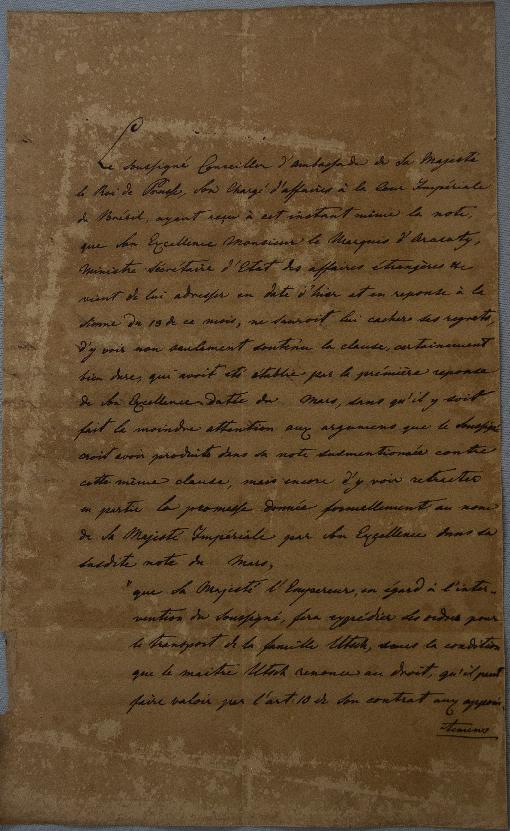 Le Soussigné Conseiller d'Ambassade de Sa Majesté
le Roi de Prusse, Son Chargé d'affaires à la Cour Impériale
de Brésil, ayant reçu à cet instant même la note,
que Son Excellence Monsieur le Marquis d'Aracaty,
Ministre Sécrétaire d'Etat des affaires étrangères
vient de lui adresser en date d'hier et en reponse à la
sienne du 19 de ce mois, ne sauroit lui cacher ses regrets,
d'y voir non seulement soutenu la clause, certainement
bien dure, qui avoit été établie par la prémière reponse
de Son Excellence datée du Mars, sans qu'il y soit
fait la moindre attention aux argumens que le Soussigné
croit avoir produits dans sa note susmentionnée contre
cette même clause, mais encore d'y voir retracter
en partie la promesse donnée formellement au nom
de Sa Majesté Impériale par Son Excellence dans sa
susdite note du Mars,
"que Sa Majesté l'Empereur, en égard à l'inter-
vention du Soussigné, fera expédier Ses ordres pour
le transport de la famille, sous la condition
que le maître renonce au droit, qu'il peut
faire valoir par l'art. 10 de son contrat aux appoin-
temens